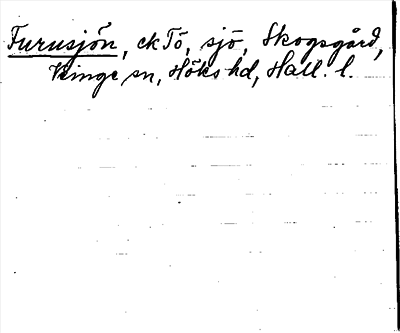 Furusjön, ek Tö, sjö, Skogsgård,
Kinge sn, Höks hd, Hall. l.